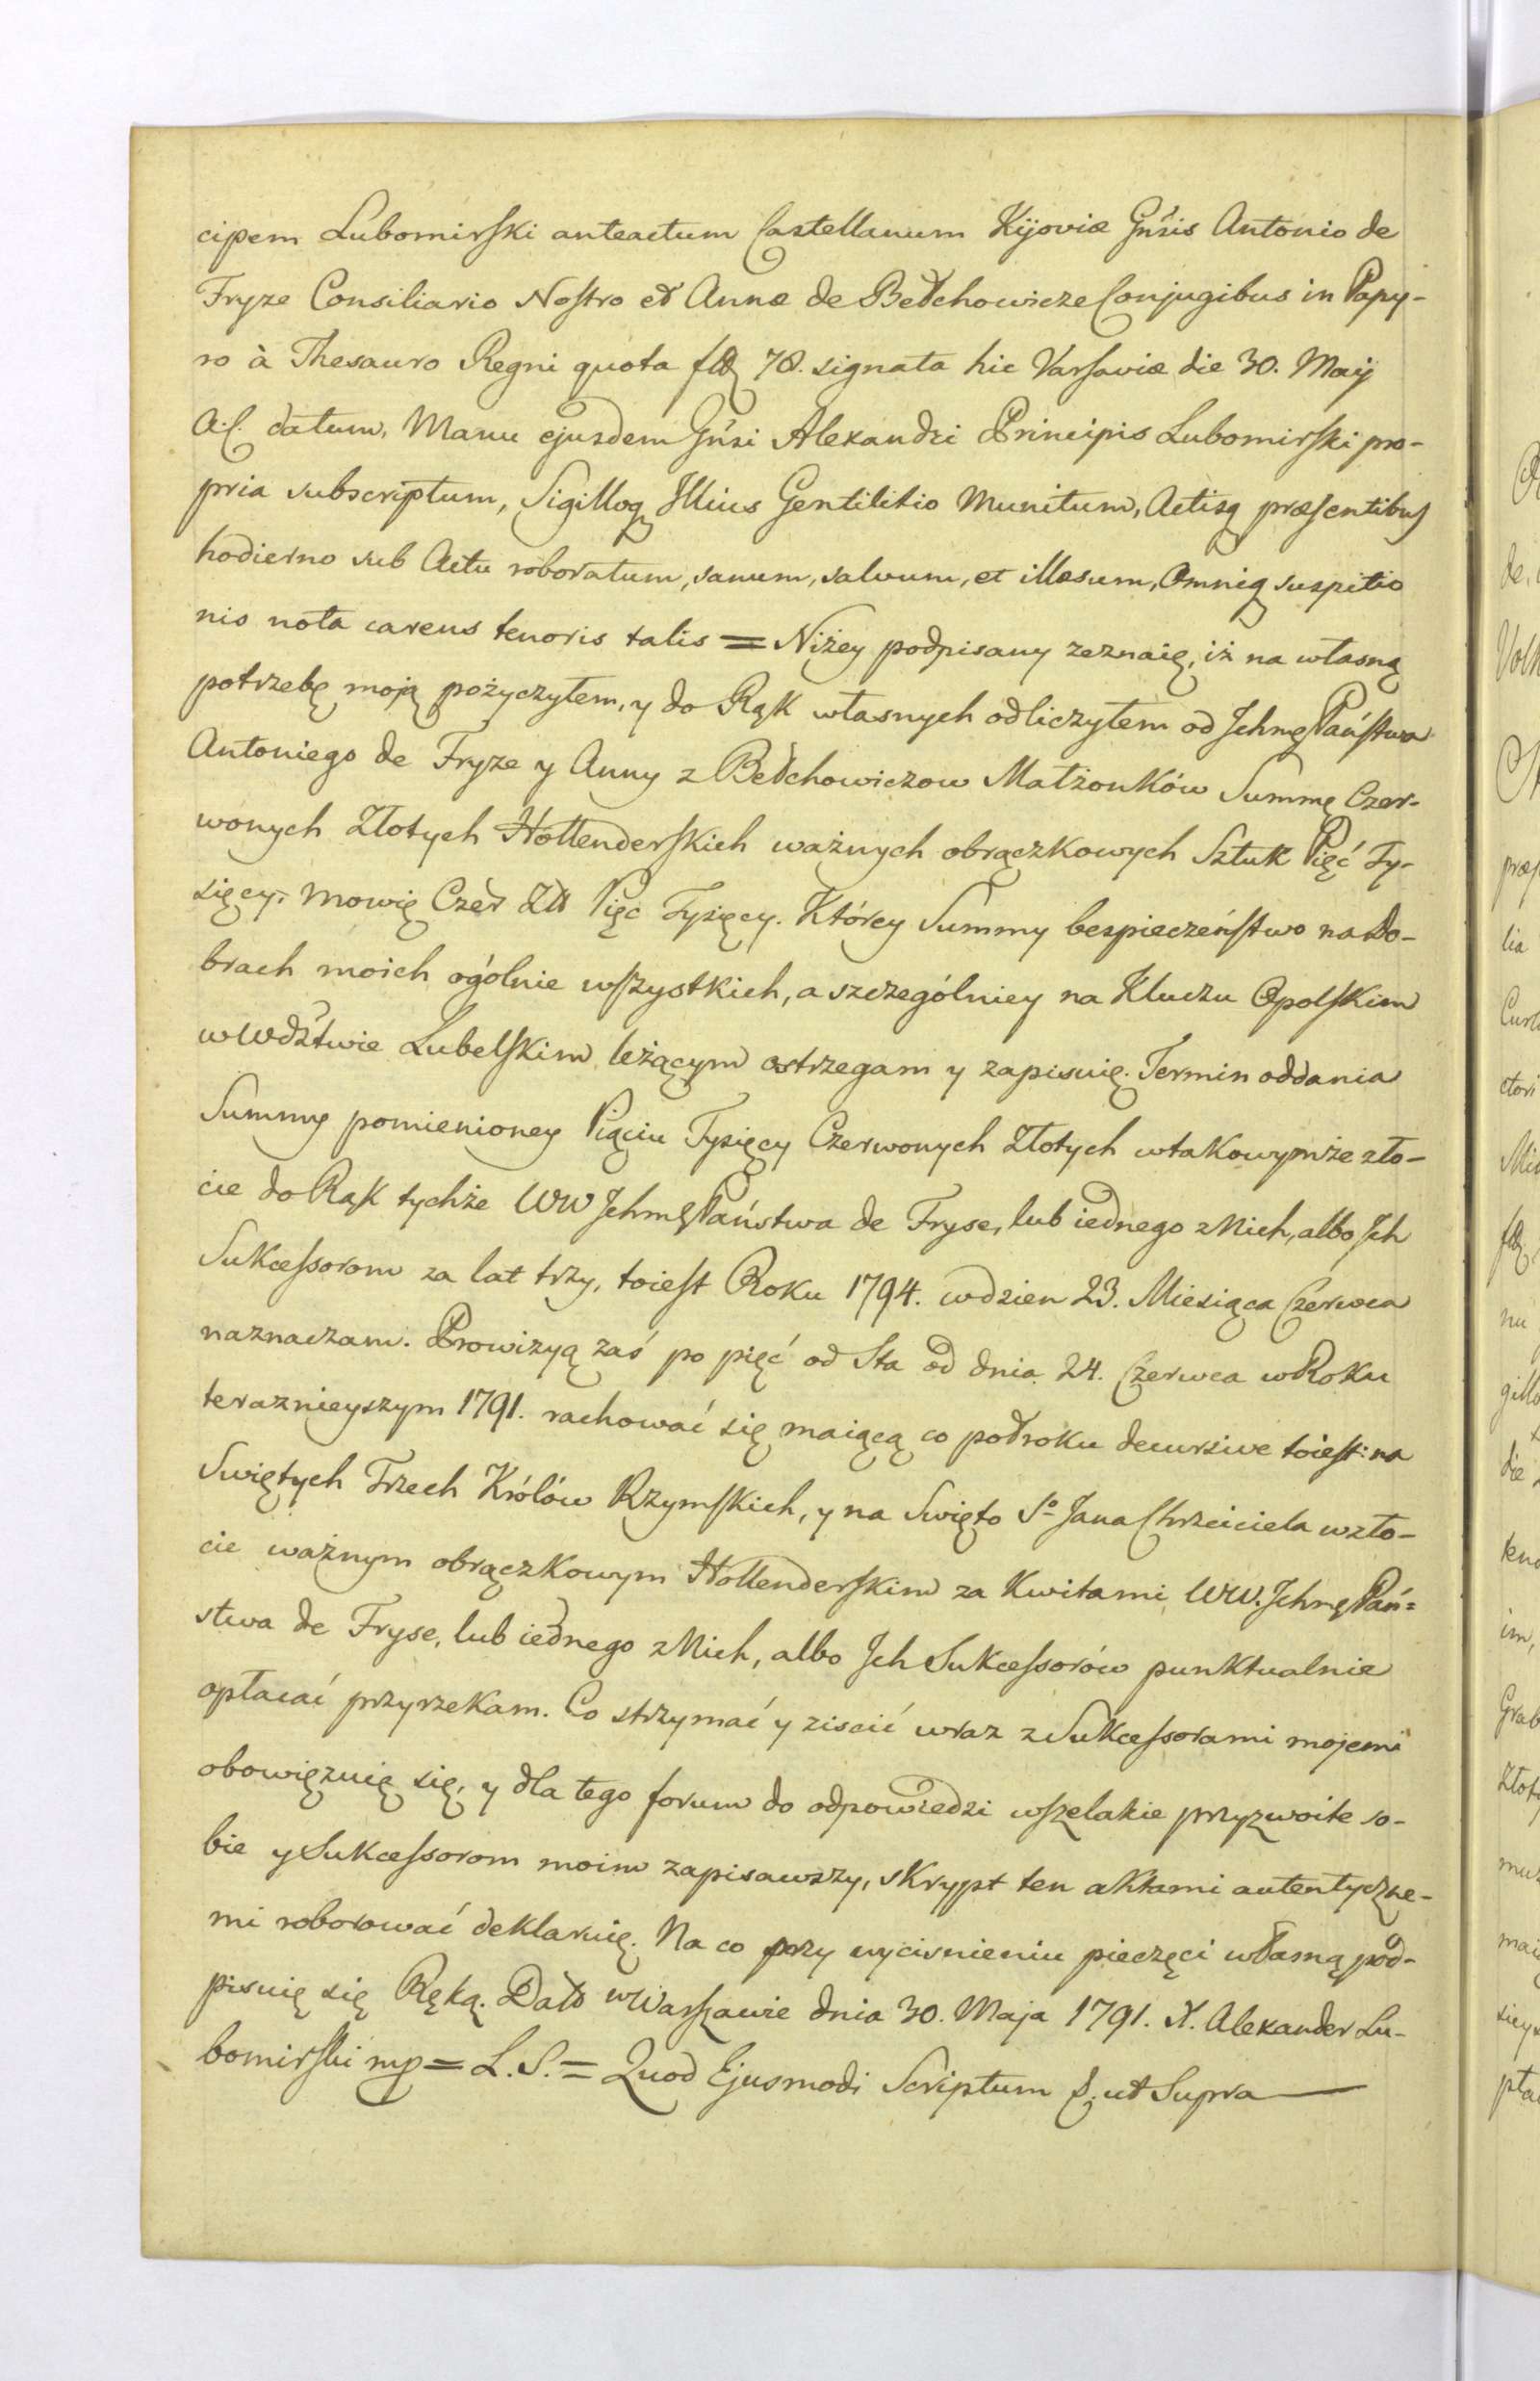 cipem Lubomirski anteactum Castellanum Kijoviæ Gnsis Antonio de
Fryze Consiliario Nostro et Annæ de Bełchowicze Conjugibus in Papy-
ro à Thesauro Regni quota 78. signata hic Varsaviæ die 30. Maij
A.C. datum, Manu ejusdem Gnsi Alexandri Principis Lubomirski pro-
pria subscriptum, Sigilloq Illius Gentilitio Munitum, Actisq præsentibus
hodierno sub Actu roboratum, sanum, salvum, et illæsum, Omniq suspitio
nis nota carens tenoris talis = Niżey podpisany zeznaię, iż na własną
potrzebę moją pożyczyłem, y do Rąk własnych odliczyłem od Jchmę Państwa
Antoniego de Fryze y Anny z Bełchowiczow Małżonków Summę Czer-
wonych Złotych Hollenderskich ważnych obrączkowych Sztuk Pięć Ty-
sięcy, mowię Czer Złł Pięc Tysięcy. Którey Summy bespieczeństwo na Do-
brach moich ogólnie wszystkich, a szczególniey na Kluczu Opolskim
w Wdztwie Lubelskim leżącym ostrzegam y zapisuię. Termin oddania
Summy pomienioney Pięciu Tysięcy Czerwonych Złotych w takowymże zło-
cie do Rąk tychże WW Jchmę Państwa de Fryse, lub iednego z Nich, albo Jch
Sukcessorom za lat trzy, toiest Roku 1794. w dzien 23. Miesiąca Czerwca
naznaczam. Prowizyą zaś po pięć od Sta od dnia 24. Czerwca w Roku
teraznieyszym 1791. rachować się maiącą co połroku decursive toiest: na
Swiętych Trzech Królów Rzymskich, y na Swięto So Jana Chrzciciela w zło-
cie ważnym obrączkowym Hollenderskim za Kwitami WW. Jchmę Pań=
stwa de Fryse, lub iednego z Nich, albo Jch Sukcessorów punktualnie
opłacać przyrzekam. Co strzymać y ziscić wraz z Sukcessorami mojemi
obowięzuię się, y dla tego forum do odpowiedzi wszelakie przyzwoite so-
bie y Sukcessorom moim zapisawszy, skrypt ten aktami autentyczne-
mi roborować deklaruię. Na co przy wycisnieniu pieczęci własną pod-
pisuię się Ręką. Datt w Warszawie dnia 30. Maja 1791. X. Alexander Lu-
bomirski mp = L.S. = Quod Ejusmodi Scriptum &. ut Supra